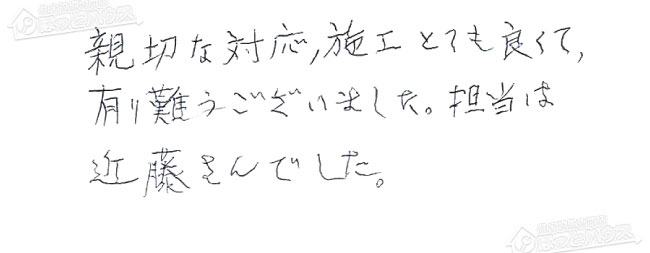 親切な対応,施工とても良くて,
有り難うございました。担当は
近藤さんでした。